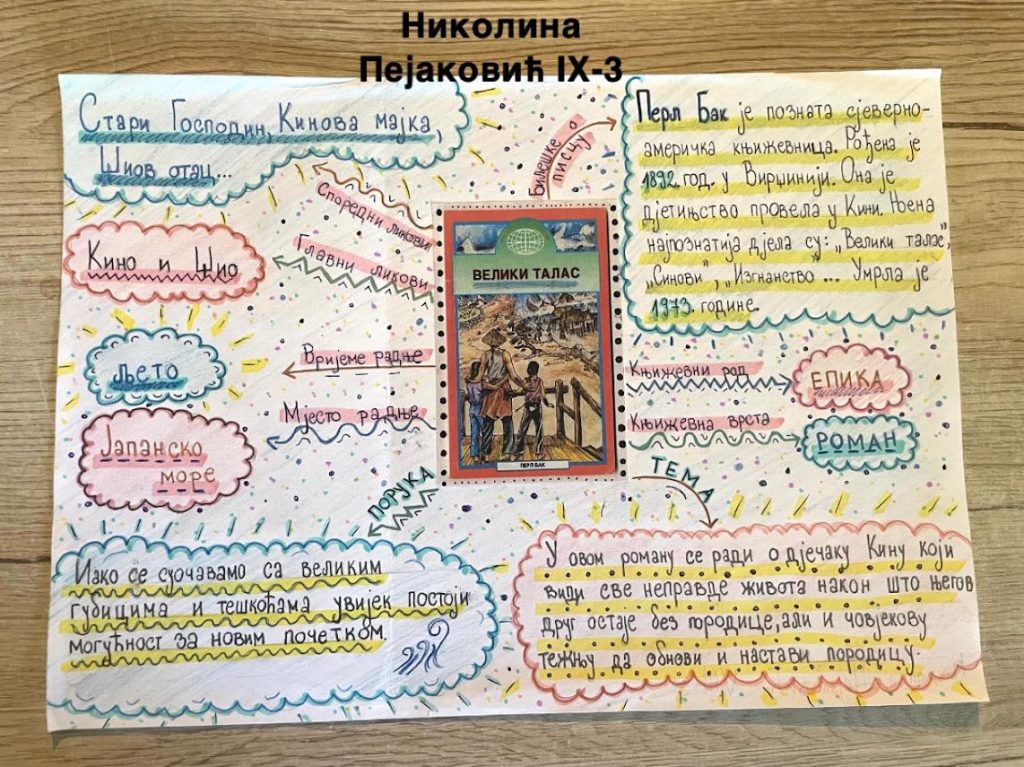 Николина
Пејаковић IX-3
Стари Господин, Кинова мајка,
Шиов отац...
Споредни ликови
Главни ликови
Кино и Шио
Вријеме радње
љето
Мјесто радње
Јапанско
море
ПОРУКА
Иако се суочавамо са великим
губицима и тешкоћама увијек постоји
могућност за новим почетком.
ВЕЛИКИ ТАЛАС
ПЕРЛ БАК
Биљешке о
писцу
Перл Бак је позната сјеверно-
америчка књижевница. Рођена је
1892. год. у Вирџинији. Она је
дјетињство провела у Кини. Њена
најпознатија дјела су: „Велики талас”,
„Синови”, „Изгнанство”... Умрла је
1973. године.
Књижевни род
ЕПИКА
Књижевна врста
РОМАН
ТЕМА
У овом роману се ради о дјечаку Кину који
види све неправде живота након што његов
друг остаје без породице, али и човјекову
тежњу да обнови и настави породицу.